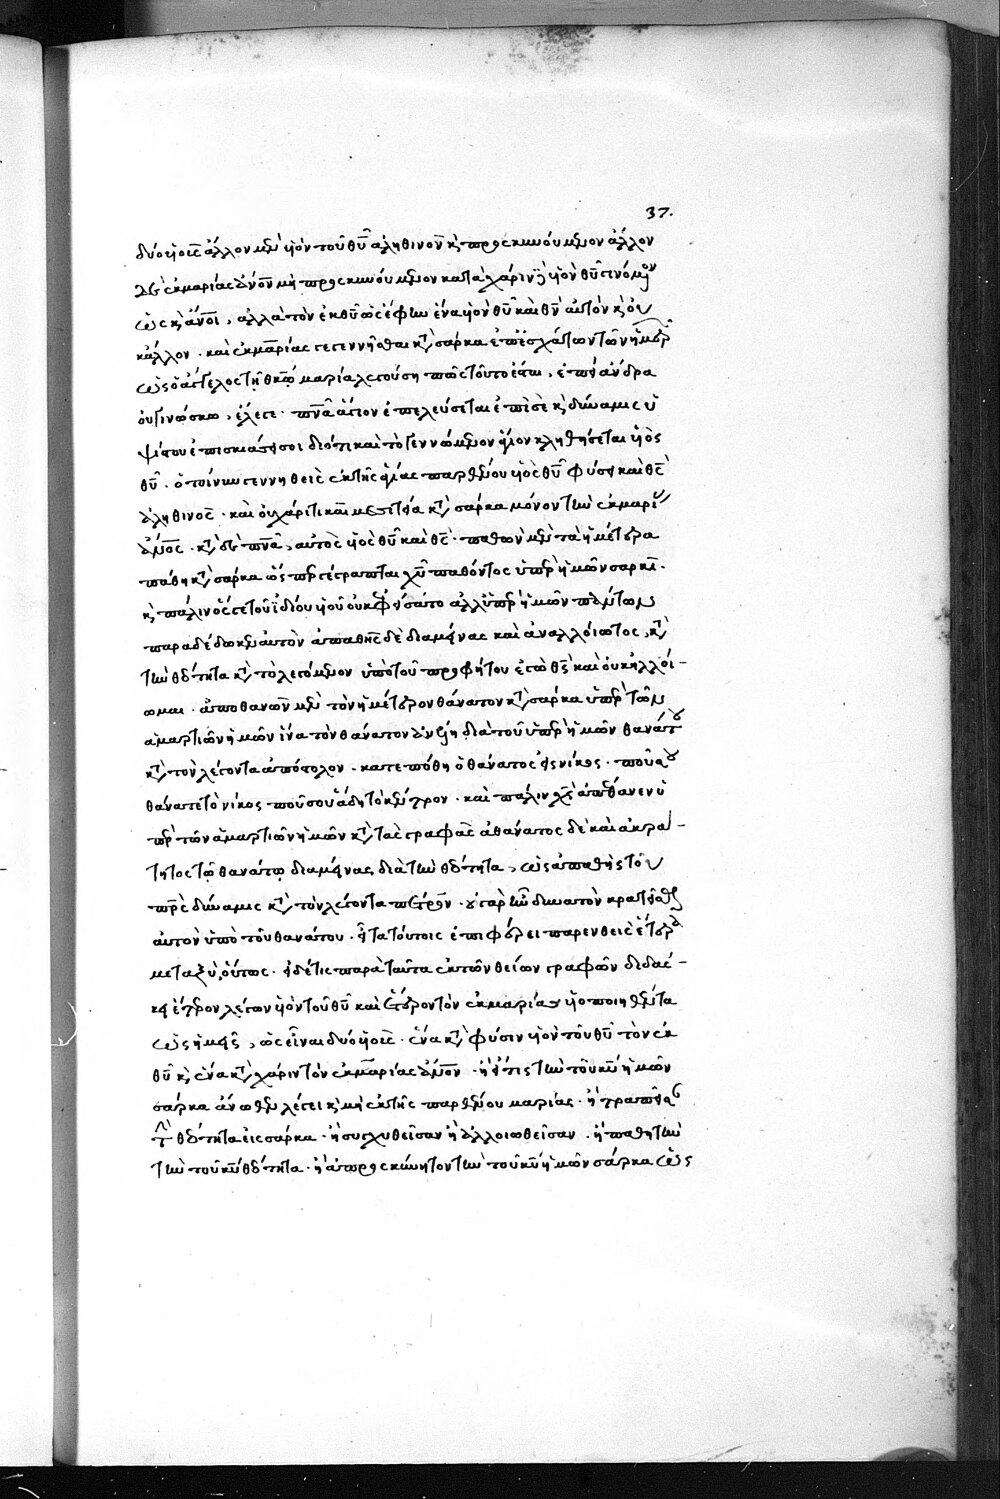 37.
δύο υἱοὺς ἄλλον μὲν υἱὸν τοῦ θῦ ἀληθινὸν κὶ προσκυνούμενον ἄλλον
δὲ ἐκ μαρίας ἄνον μὴ προσκυνούμενον κατὰ χάριν υἱὸν θῦ
ὡς κὶ ἄνοι, ἀλλὰ τὸν ἐκ θῦ ὡς ἔφην ἕνα υἱὸν θῦ καὶ θν αὐτὸν κὶ οὐ
κ ἄλλον. καὶ ἐκ μαρίας γεγεννῆσθαι κτ σάρκα ἐπ ἐσχάτων τῶν ἡμερ
ὡς ὁ ἄγγελος τῇ θκῳ μαρία λεγούση πῶς τοῦτο ἔσται, ἐπεὶ ἄνδρα
οὐ γινώσκω, ἔλεγε. πνα ἅγιον ἐπελεύσεται ἐπὶ σὲ κὶ δύναμις ὑ
ψίστου ἐπισκιάσει σοι διότι καὶ τὸ γεννώμενον ἅγιον κληθήσεται υἱὸς
θῦ. ὁ τοίνυν γεννηθεὶς ἐκ τῆς ἁγίας παρθένου υἱὸς θῦ φύσει καὶ θς
ἀληθινὸς. καὶ οὐ χάριτι καὶ μετουσία κτ σάρκα μόνον τὴν ἐκ μαρί
ἄνος. κτ δὲ πνα, αὐτὸς υἱὸς θῦ καὶ θς. παθὼν μὲν τὰ ἡμέτερα
πάθη κτ σάρκα ὡς γέγραπται χυ παθόντος ὑπὲρ ἡμῶν σαρκὶ.
κὶ πάλιν ὅς γε τοῦ ἰδίου υἱοῦ οὐκ ἐφείσατο ἀλλ ὑπὲρ ἡμῶν πάντων
παραδέδωκεν αὐτὸν ἀπαθὴς δὲ διαμείνας καὶ ἀναλλοίωτος, κτ
τὴν θεότητα κτ τὸ λεγόμενον ὑπὸ τοῦ προφήτου ἐγὼ θς καὶ οὐκ ἠλλοί-
ωμαι. ἀποθανὼν μὲν τὸν ἡμέτερον θάνατον κτ σάρκα ὑπὲρ τῶν
ἁμαρτιῶν ἡμῶν ἵνα τὸν θάνατον ἀνέλη διὰ τοῦ ὑπὲρ ἡμῶν θανάτου
κτ τὸν λέγοντα ἀπόστολον. κατεπόθη ὁ θάνατος εἰς νίκος. ποῦ σου
θάνατε τὸ νίκος ποῦ σου ἅδη τὸ κέντρον. καὶ πάλιν χς ἀπέθανεν ὑ
πὲρ τῶν ἁμαρτιῶν ἡμῶν κτ τὰς γραφὰς ἀθάνατος δὲ καὶ ἀκρά-
τητος τῷ θανάτῳ διαμείνας διὰ τὴν θεότητα, ὡς ἀπαθὴς τοῦ
πρς δύναμις κτ τὸν λέγοντα πέτρον. οὐ γὰρ ἦν δυνατὸν κρατεῖσθαι
αὐτὸν ὑπὸ τοῦ θανάτου. εἶτα τούτοις ἐπιφέρει παρενθεὶς ἕτερα
μεταξὺ, οὕτως. εἰ δέ τις παρὰ ταῦτα ἐκ τῶν θείων γραφῶν διδάσ-
κει ἕτερον λέγων υἱὸν τοῦ θῦ καὶ ἕτερον τὸν ἐκ μαρίας υἱοποιηθέντα
ὡς ἡμεῖς, ὡς εἶναι δύο υἱοὺς. ἕνα κτ φύσιν υἱὸν τοῦ θῦ τὸν ἐκ
θῦ κὶ ἕνα κτ χάριν τὸν ἐκ μαρίας ἄνον. ἢ εἴ τις τὴν τοῦ κυ ἡμῶν
σάρκα ἄνωθεν λέγει κὶ μὴ ἐκ τῆς παρθένου μαρίας. ἢ τραπεῖσαν
τὴν θεότητα εἰς σάρκα. ἢ συγχυθεῖσαν ἢ ἀλλοιωθεῖσαν. ἢ παθητὴν
τὴν τοῦ κυ θεότητα. ἢ ἀπροσκύνητον τὴν τοῦ κυ ἡμῶν σάρκα ὡς